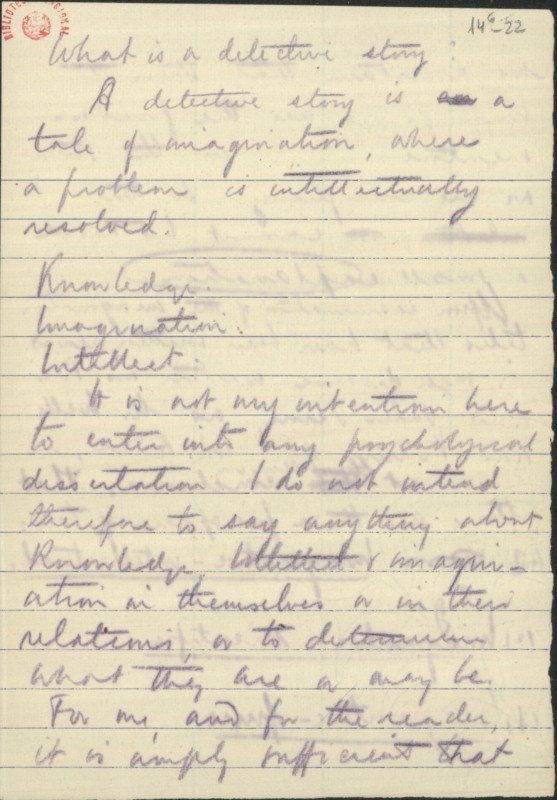 14 6-22
What is a detective story?
A detective story is an a
tale of imagination, where
a problem is intellectually
resolved.
Knowledge.
Imagination.
Intellect.
It is not my intention here
to enter into any psychological
dissertation. I do not intend
therefore to say anything about
Knowledge, Intellect & imagin-
ation in themselves or in their
relations, or to determine
what they are or may be.
For me, and for the reader,
it is simply sufficient that